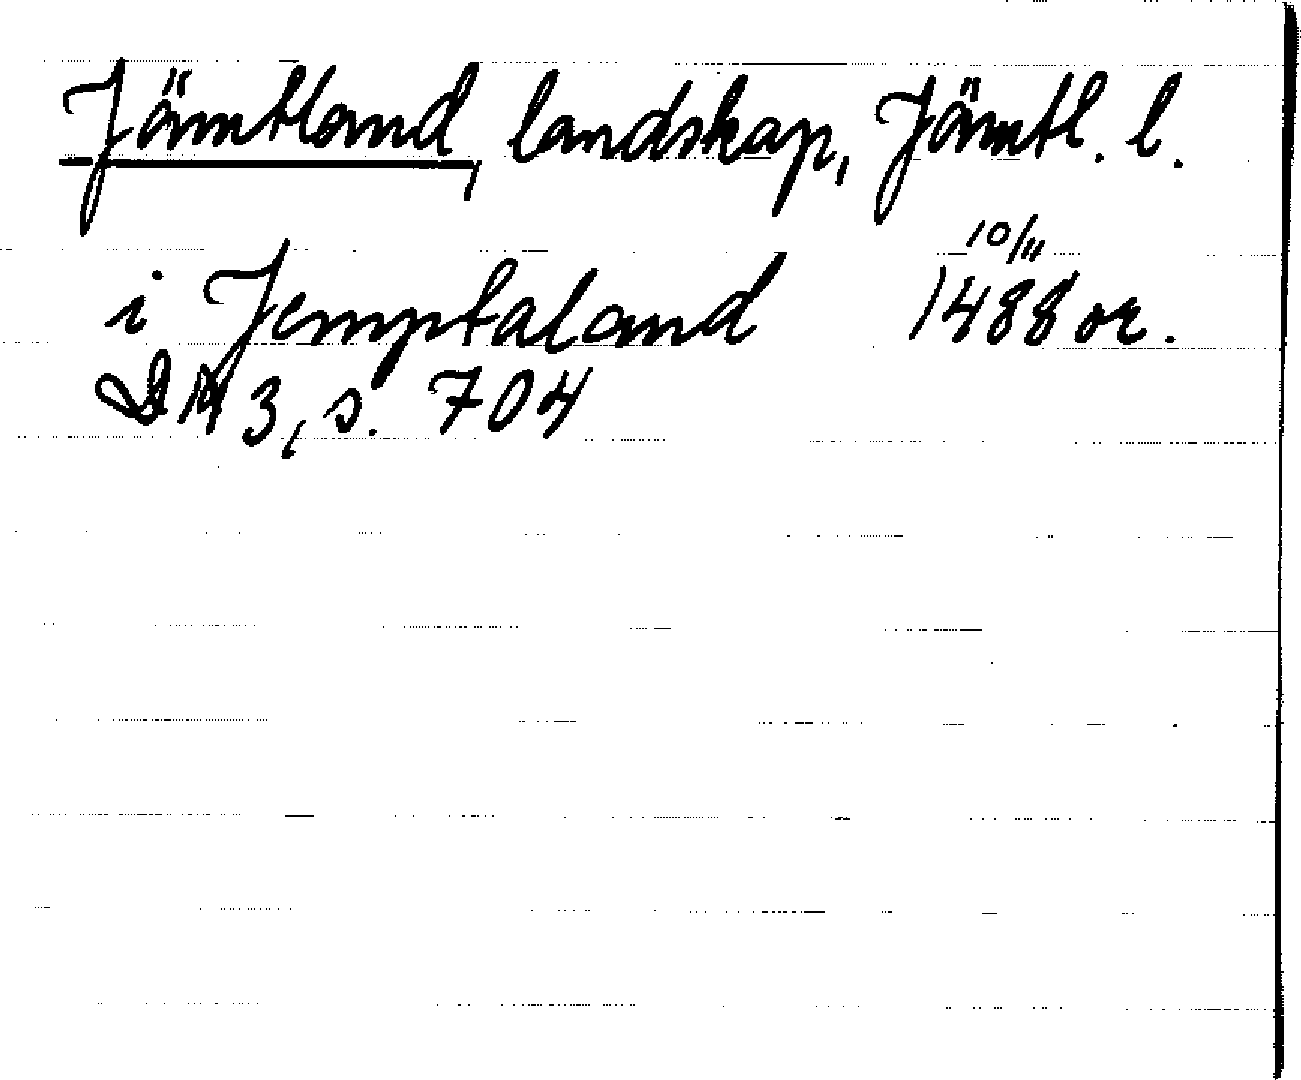 Jämtland, landskap, Jämtl. l.
10/11
i Jemptaland 1488 or.
DN 3, s. 704